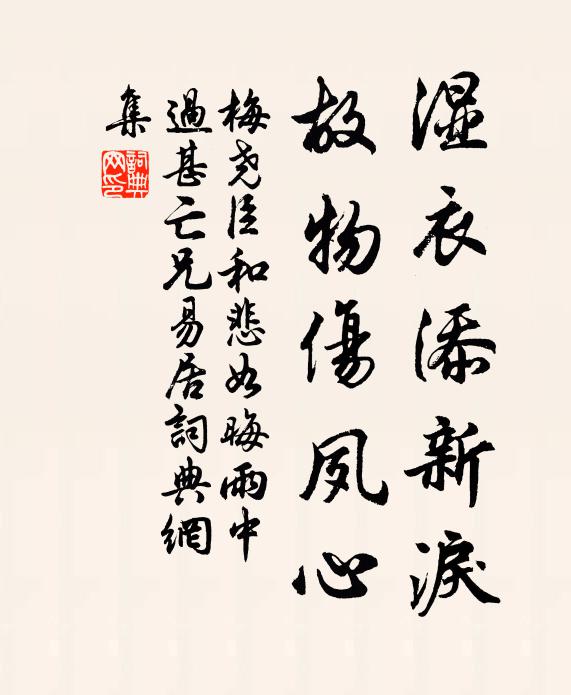 湿衣添新淚
故物傷夙心
梅尧臣和悲如晦雨中
過甚亡兄易居詞典網
集
詞典
网印